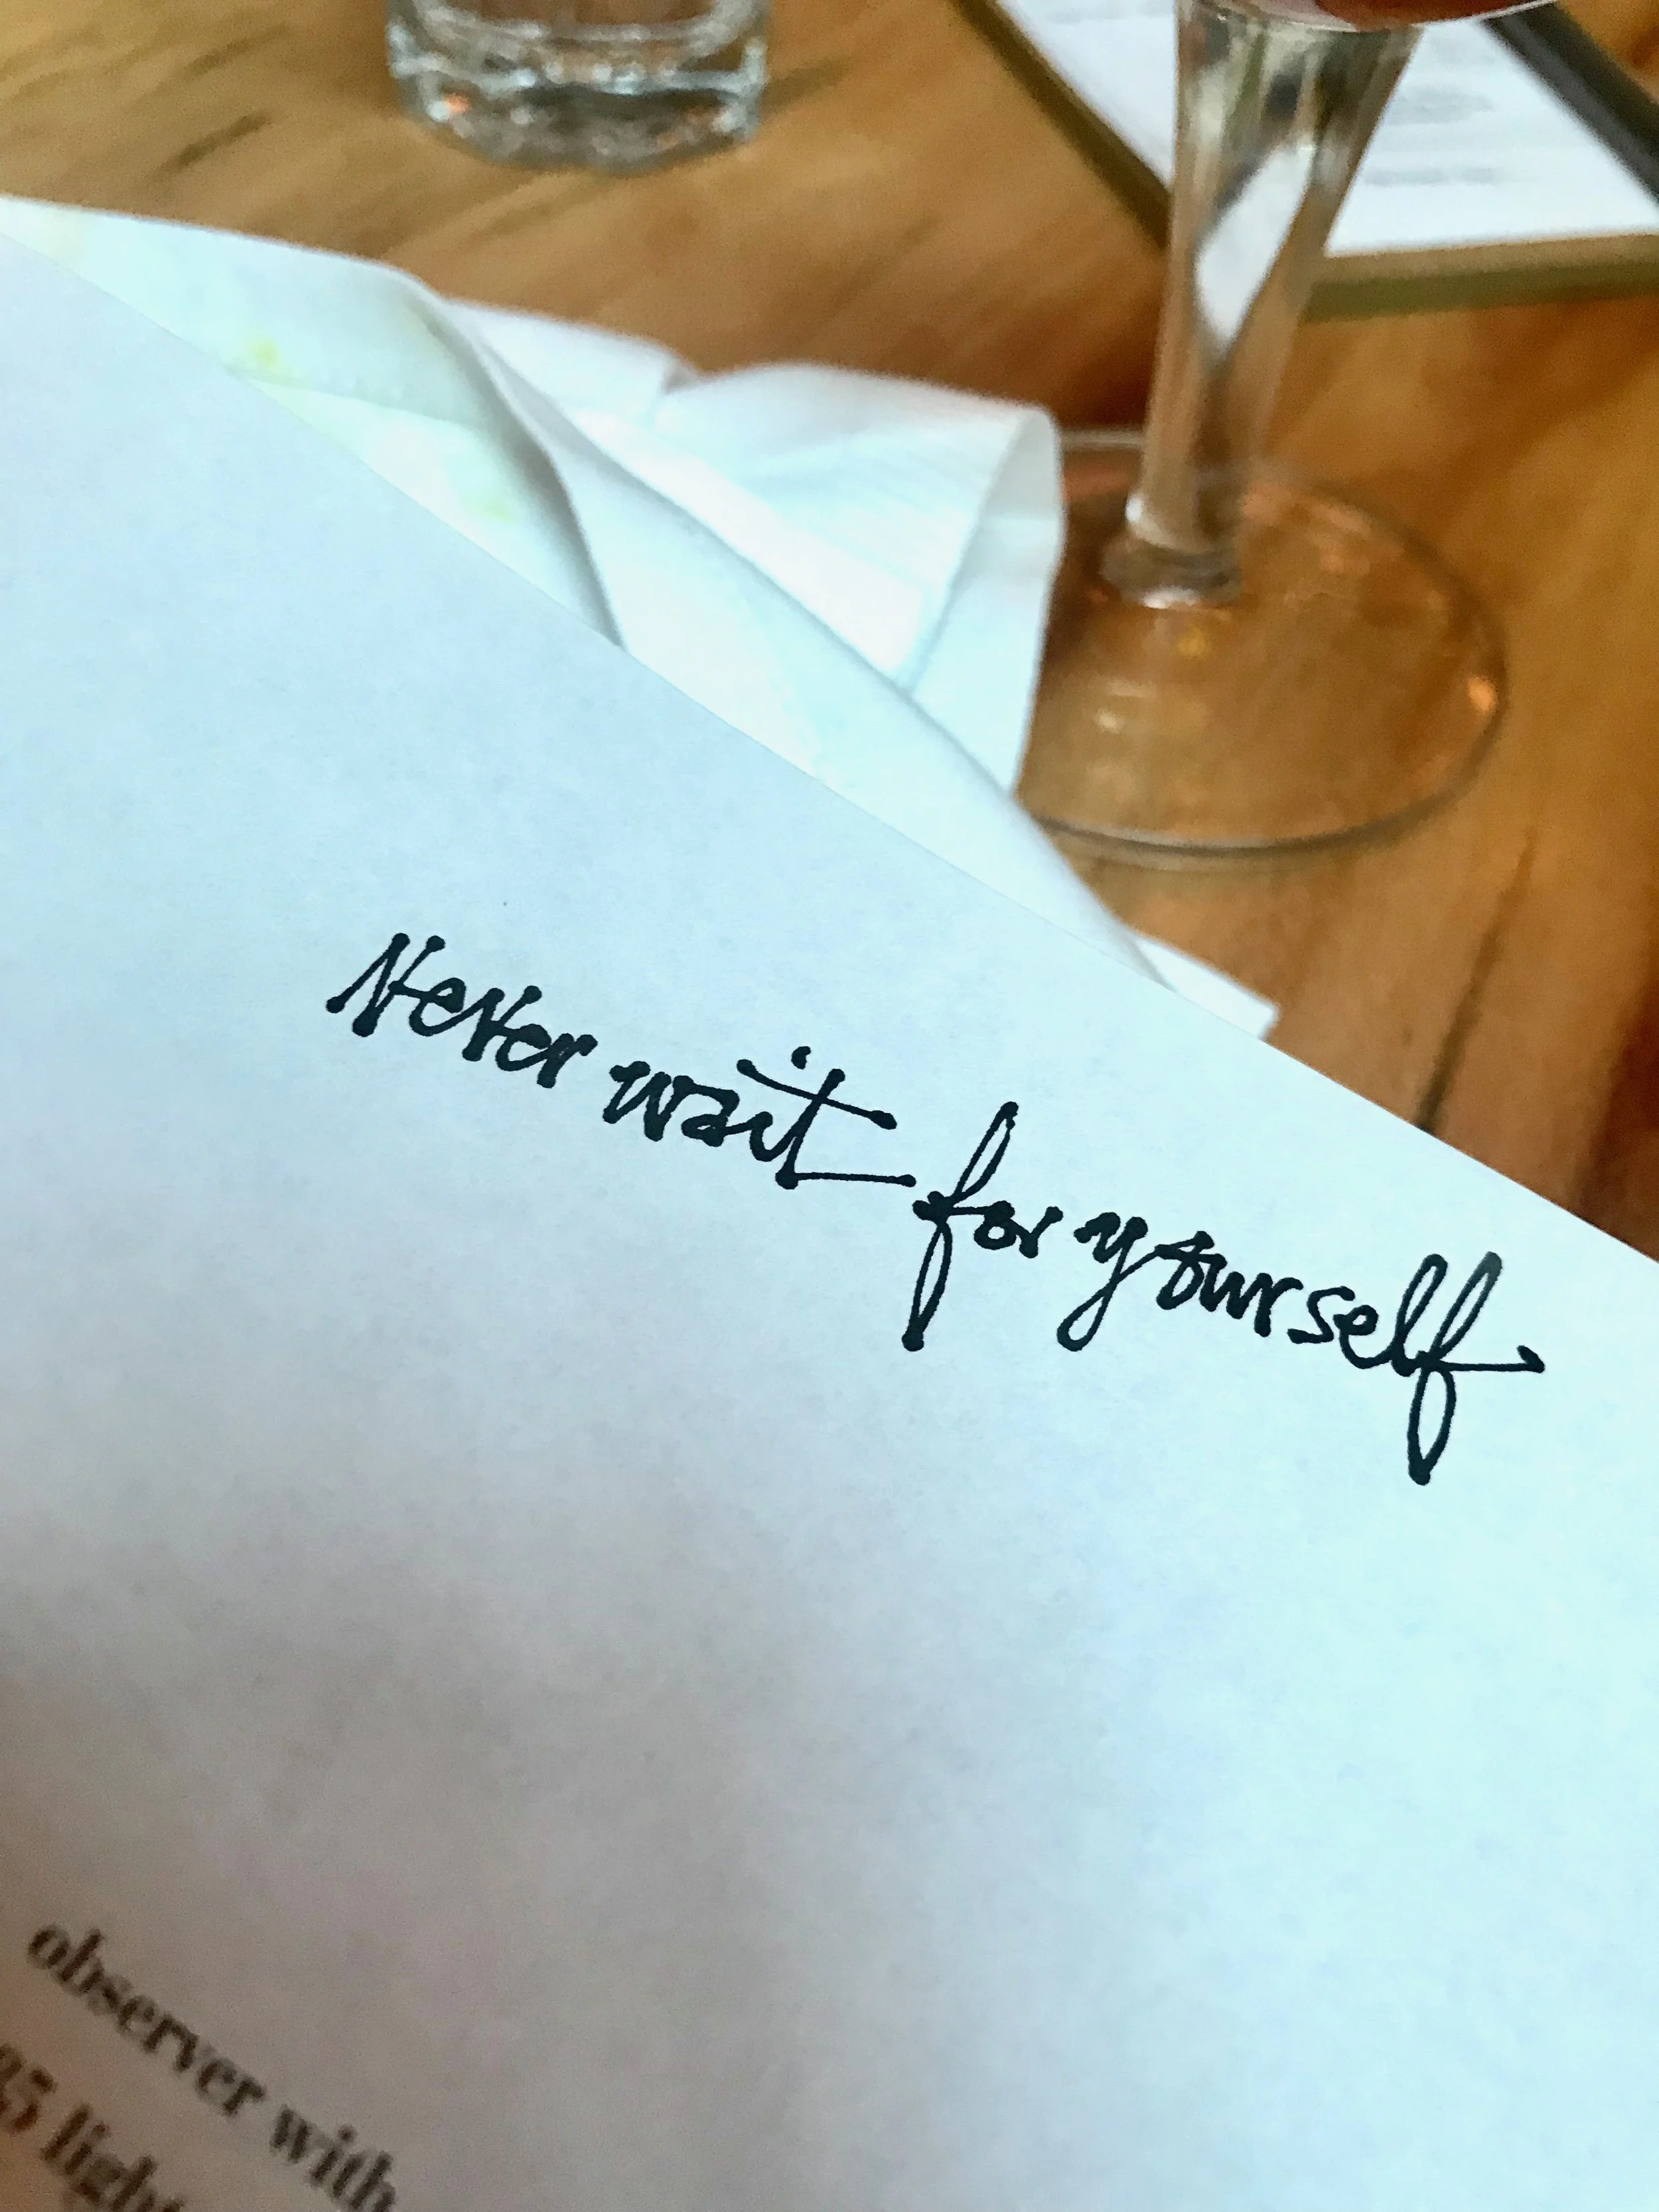 Never wait for yourself
observer with
35 light